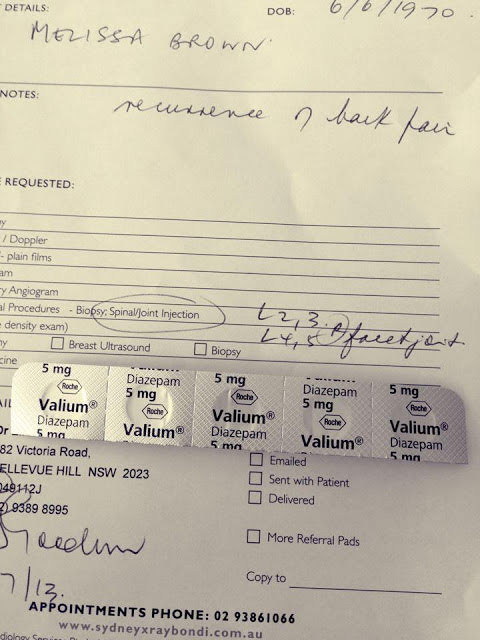 T DETAILS: DOB: 6/6/1970.
MELISSA BROWN.
NOTES:
recurrence of back pain
E REQUESTED:
/ Doppler
- plain films
am
ry Angiogram
al Procedures - Biopsy; Spinal/Joint Injection L2,3.
e density exam) L4,5 facet joint
Breast Ultrasound Biopsy
cine
5 mg 5 mg 5 mg
Roche Diazepam Roche Diazepam Roche
Valium® 5 mg Valium® 5 mg Valium®
Diazepam Roche Diazepam Roche Diazepam
5 mg Valium® 5 mg Valium® 5 mg
82 Victoria Road,
ELLEVUE HILL NSW 2023
048112J
2) 9389 8995
Emailed
Sent with Patient
Delivered
More Referral Pads
7/13.
Copy to
APPOINTMENTS PHONE: 02 93861066
www.sydneyxraybondi.com.au